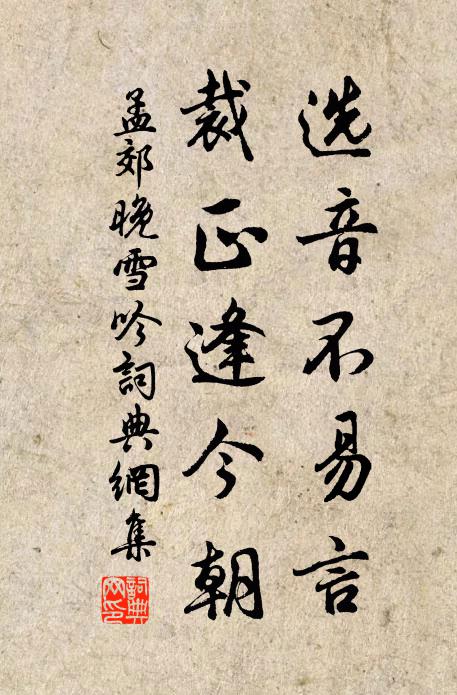 选音不易言
裁正逢今朝
孟郊晚雪吟詞典網集
詞典
网印